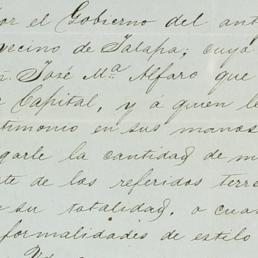 or el Gobierno del ant
vecino de Jalapa; cuya
n. José Mª Alfaro que
Capital, y á quien le
timonio en sus manos
garle la cantidad de m
te de los referidos terre
n su totalidad, o cua
formalidades de estilo